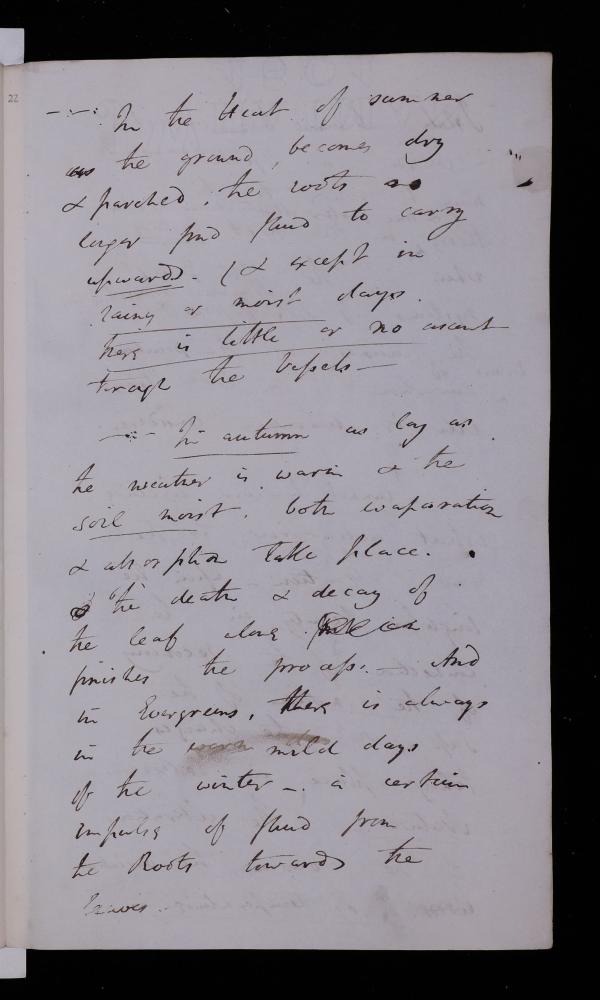 22
– In the Heat of summer
as the ground, becomes dry
& parched, the roots no
longer find fluid to carry
upwards – (& except in
rainy or moist days
there is little or no ascent
through the Vessels –
– In autumn as long as
the weather is warm & the
soil moist, both evaporation
& absorption take place.
the death & decay of
the leaf alone
finishes the process. – And
in Evergreens, there is always
in the warm mild days
of the winter – a certain
impulse of fluid from
the Roots towards the
leaves.